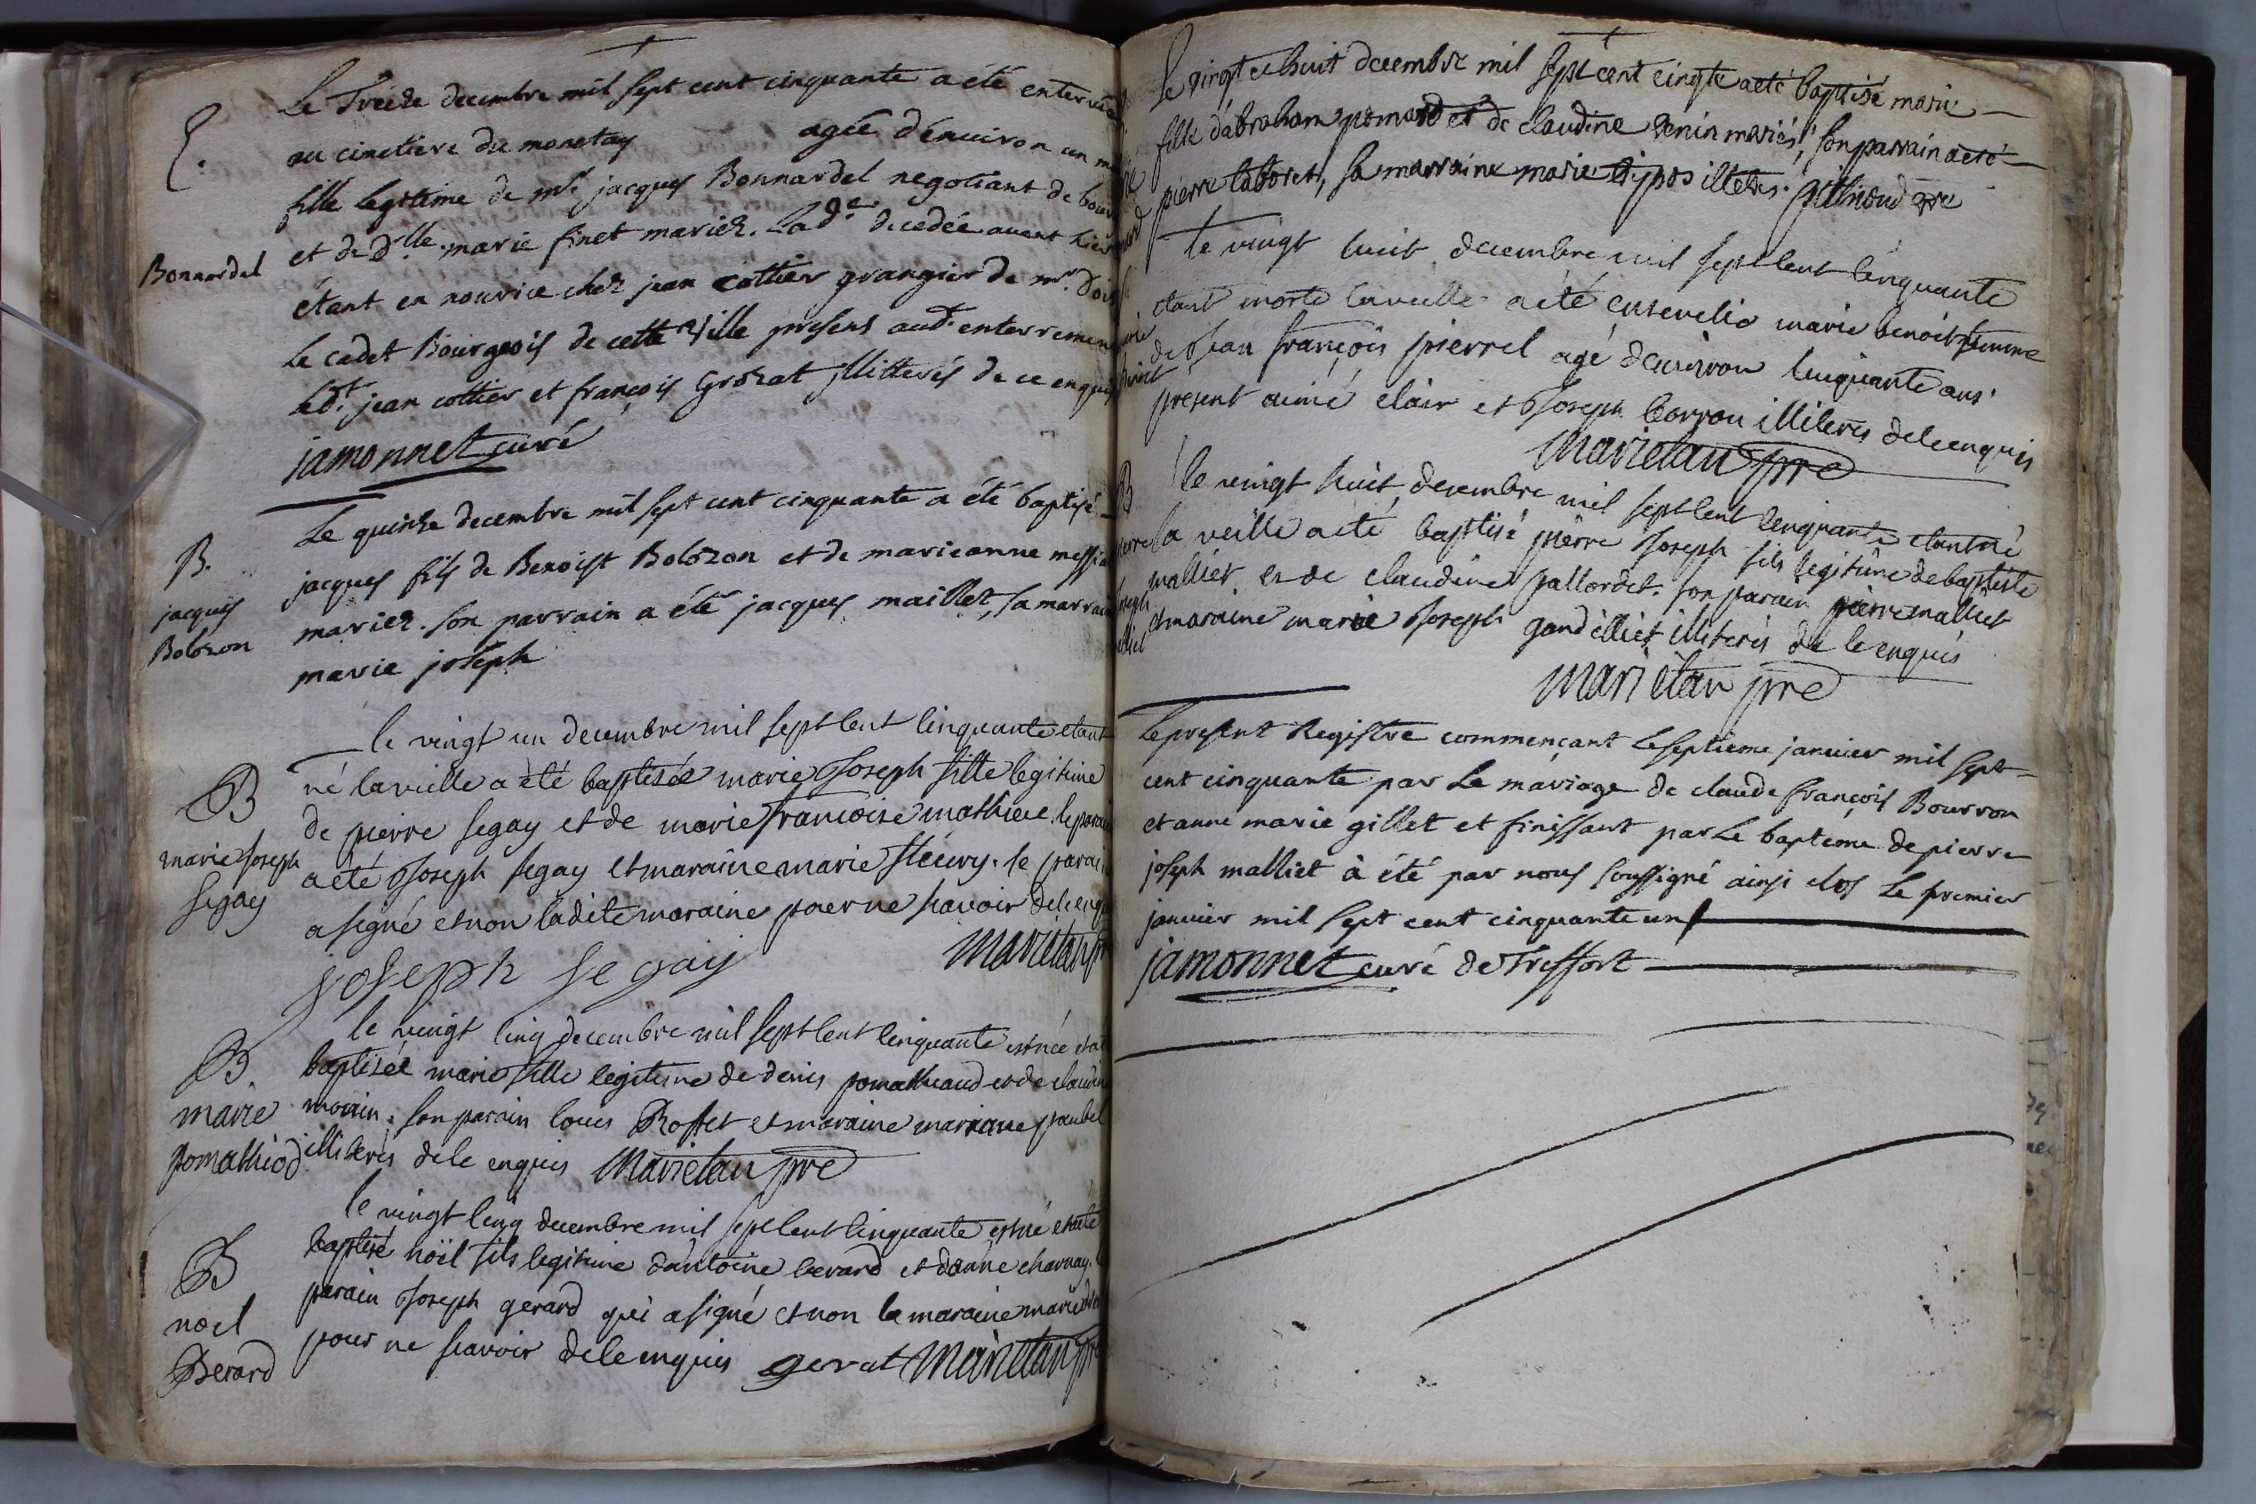 Le Treize decembre mil sept cent cinquante a été enterrée
au cimetiere du monetay agée d'environ un
E.
fille legitime de mr. jacques Bonnardel negotiant de
et de dlle. marie finet mariez. Lade. decedée avant hier
Bonnardel
étant en nourice chez jean cottier grangier de mr.
Le cadet Bourgeois de cette ville presens audt. enterrement
Ledt. jean cottier et françois Grozat illitterés de ce enquis
jamonnet curé
Le quinze decembre mil sept cent cinquante a été baptisé
B.
jacques
Bolozon
jacques fils de Benoist Bolozon et de marieanne
mariez. son parrain a été jacques maillet, sa marraine
marie joseph
le vingt un decembre mil sept cent cinquante etant
né la veille a été baptisée marie Joseph fille legitime
B
marie Joseph
Segay
de pierre segay et de marie françoise mathieu. le parain
a eté Joseph segay et maraine marie fleury. le parain
a signé et non ladite maraine pour ne scavoir de ce enquis
joseph segay marietan pre
le vingt cinq decembre mil sept cent cinquante est née et a
B
marie
pomathiod
baptisée marie fille legitime de denis pomathiaud et de claudine
morin. son parain louis Rosset et maraine mariane
illiterés de ce enquis Marietan pre
le vingt cinq decembre mil sept cent cinquante est né et a eté
B
noel
Berard
baptisé noël fils legitime d'antoine berard et d'anne charnay.
parain Joseph gerard qui a signé et non la maraine marie
pour ne scavoir de ce enquis gerat Marietan pre
Le vingt et huit decembre mil sept cent cinqte a eté baptisé marie
fille d'abraham pomard et de claudine venin mariés, son parrain a eté
pierre laboret, sa marraine marie illetrés.
le vingt huit decembre mil sept cent cinquante
etant morte la veille a été ensevelie marie benoit femme
de Jean françois pierrel agé d'environ cinquante ans
present aimé clair et Joseph borron illiterés de ce enquis
Marietan pre
B
le vingt huit decembre mil sept cent cinquante etant né
la veille a eté baptisé pierre Joseph fils legitime de baptiste
malliet et de claudine pallordet. son parain pierre malliet
et maraine marie Joseph gandilliet illiterés de ce enquis
Marietan pre
Le present Registre commençant le septieme janvier mil sept
cent cinquante par Le mariage de claude françois Bourron
et anne marie gillet et finissant par Le baptéme de pierre
joseph malliet à été par nous soussigné ainsi clos Le premier
janvier mil sept cent cinquante un
jamonnet curé de Treffort